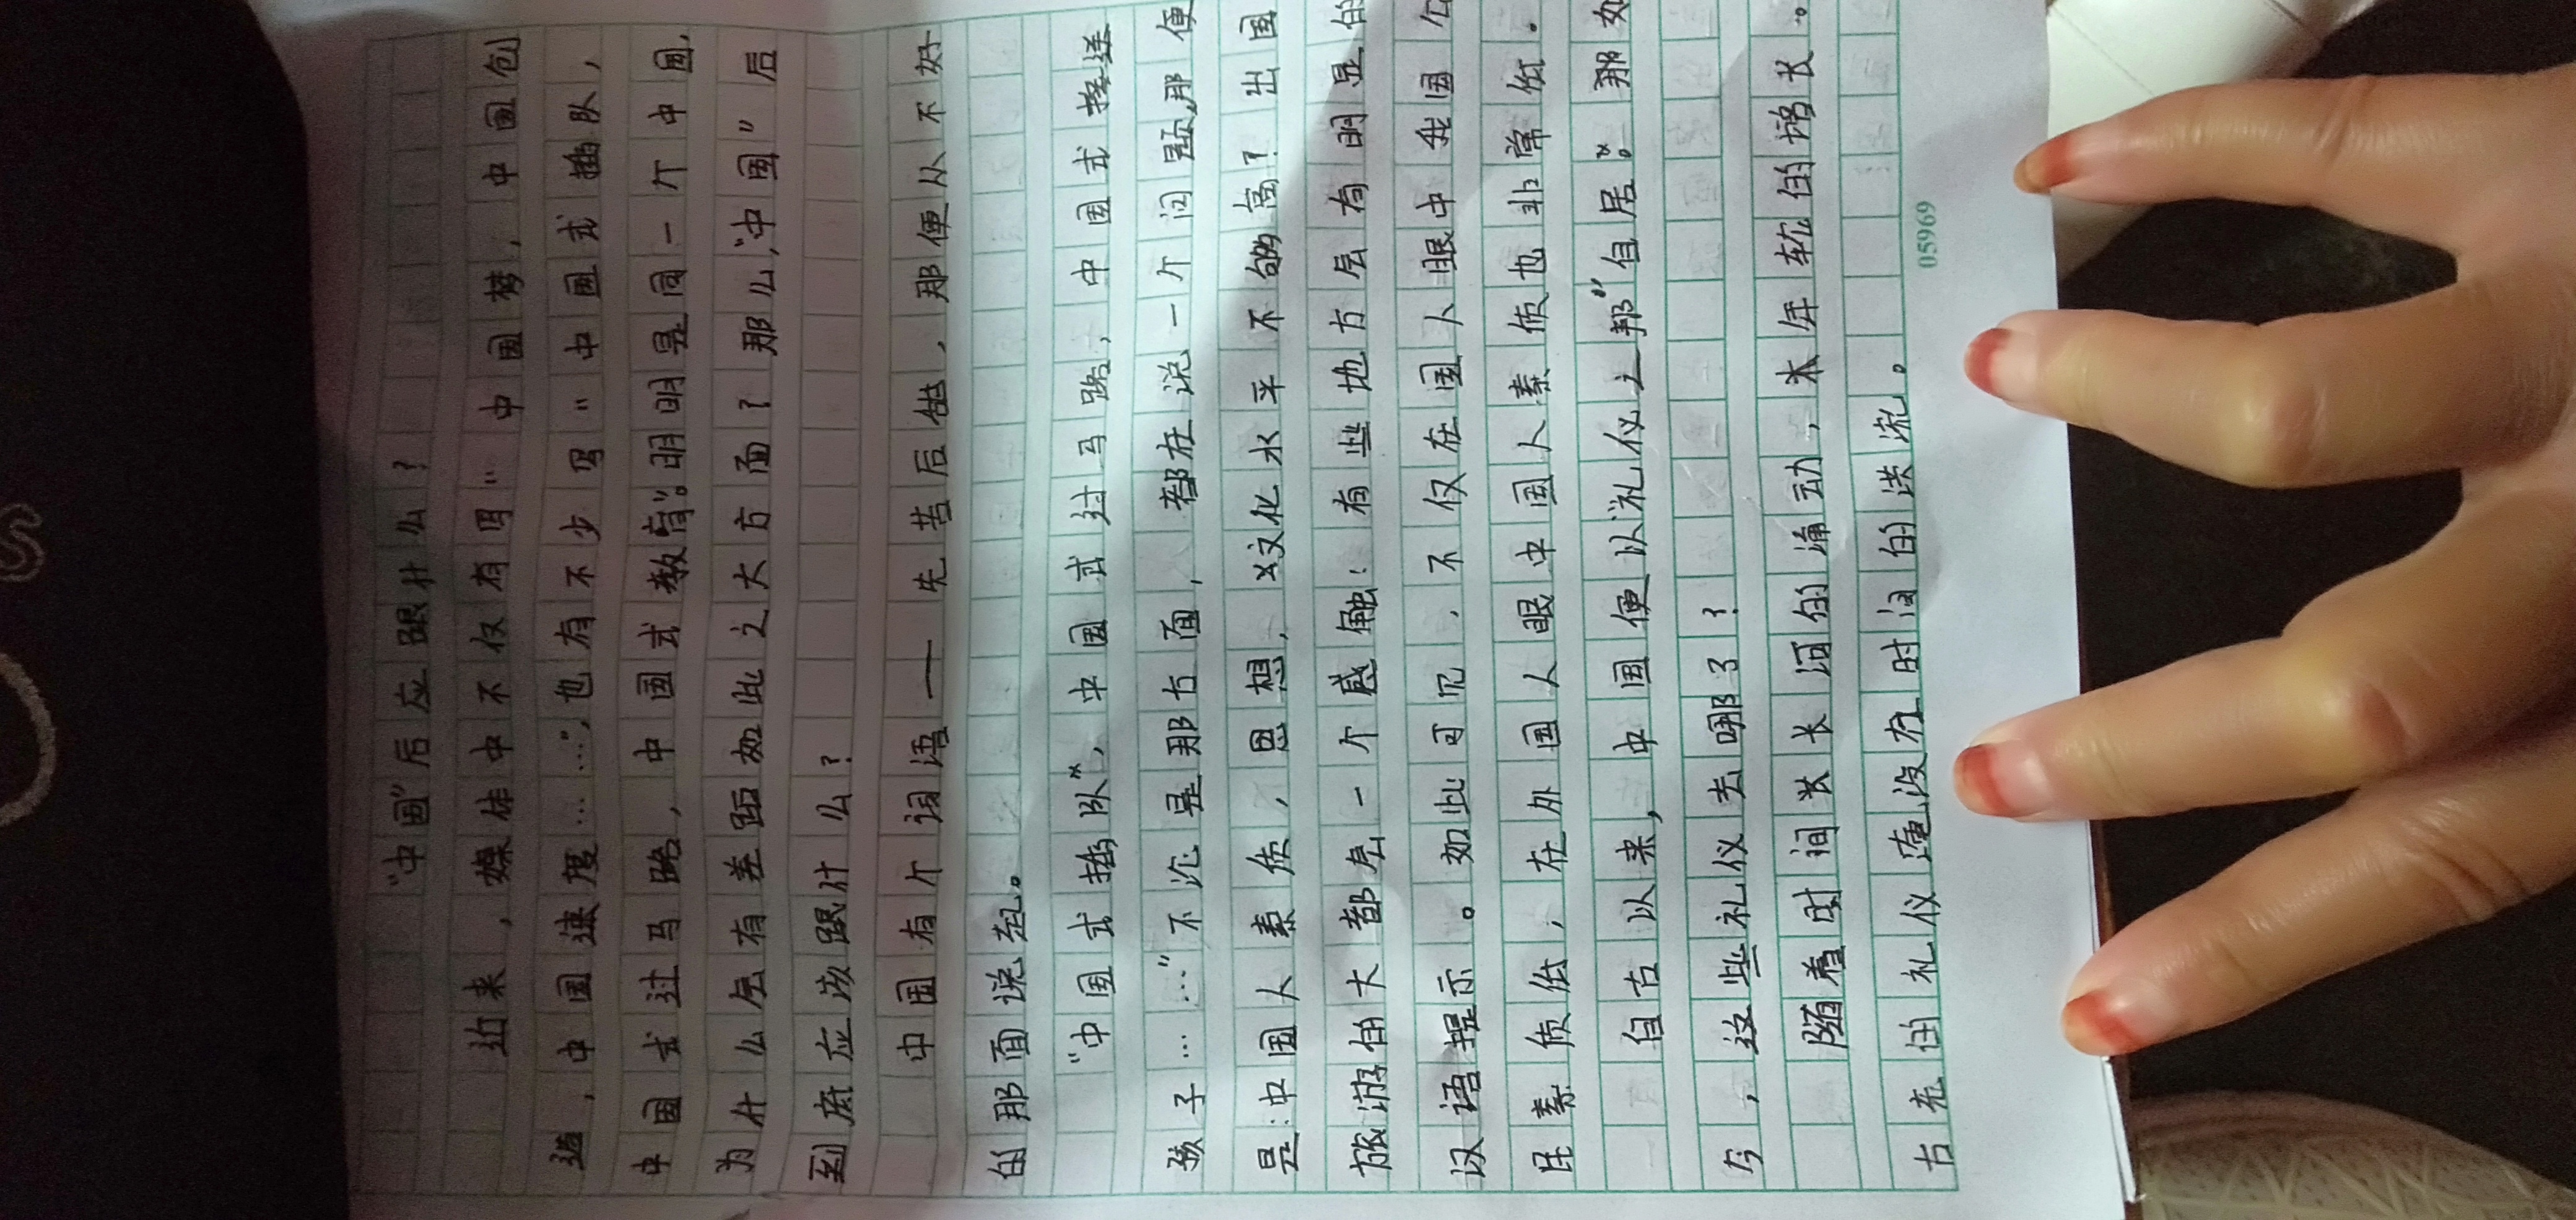 “中国”后应跟什么?
近来,媒体中不仅有用“中国梦,中国创
造,中国速度……”,也有不少写“中国式插队,
中国式过马路,中国式教育”。明明是同一个中国,
为什么会有差距如此之大方面?那么,“中国”后
到底应该跟什么?
中国有个词语——先苦后甜,那便从不好
的那面说起。
“中国式插队”,中国式过马路,中国式接送
孩子……”不论是那方面,都在说一个问题,那便
是:中国人素质,思想,文化水平不够高?出国
旅游的大都会一个感触:有些地方会有明显的
汉语提示。如此可见,不仅在国人眼中我国公
民素质低,在外国人眼中国人素质也非常低。
自古以来,中国便以礼仪之邦”自居。那如
今,这些礼仪去哪了?
随着时间长河的涌动,本年轮的增长。
古老的礼仪淹没在时间的洪流。
05969
S